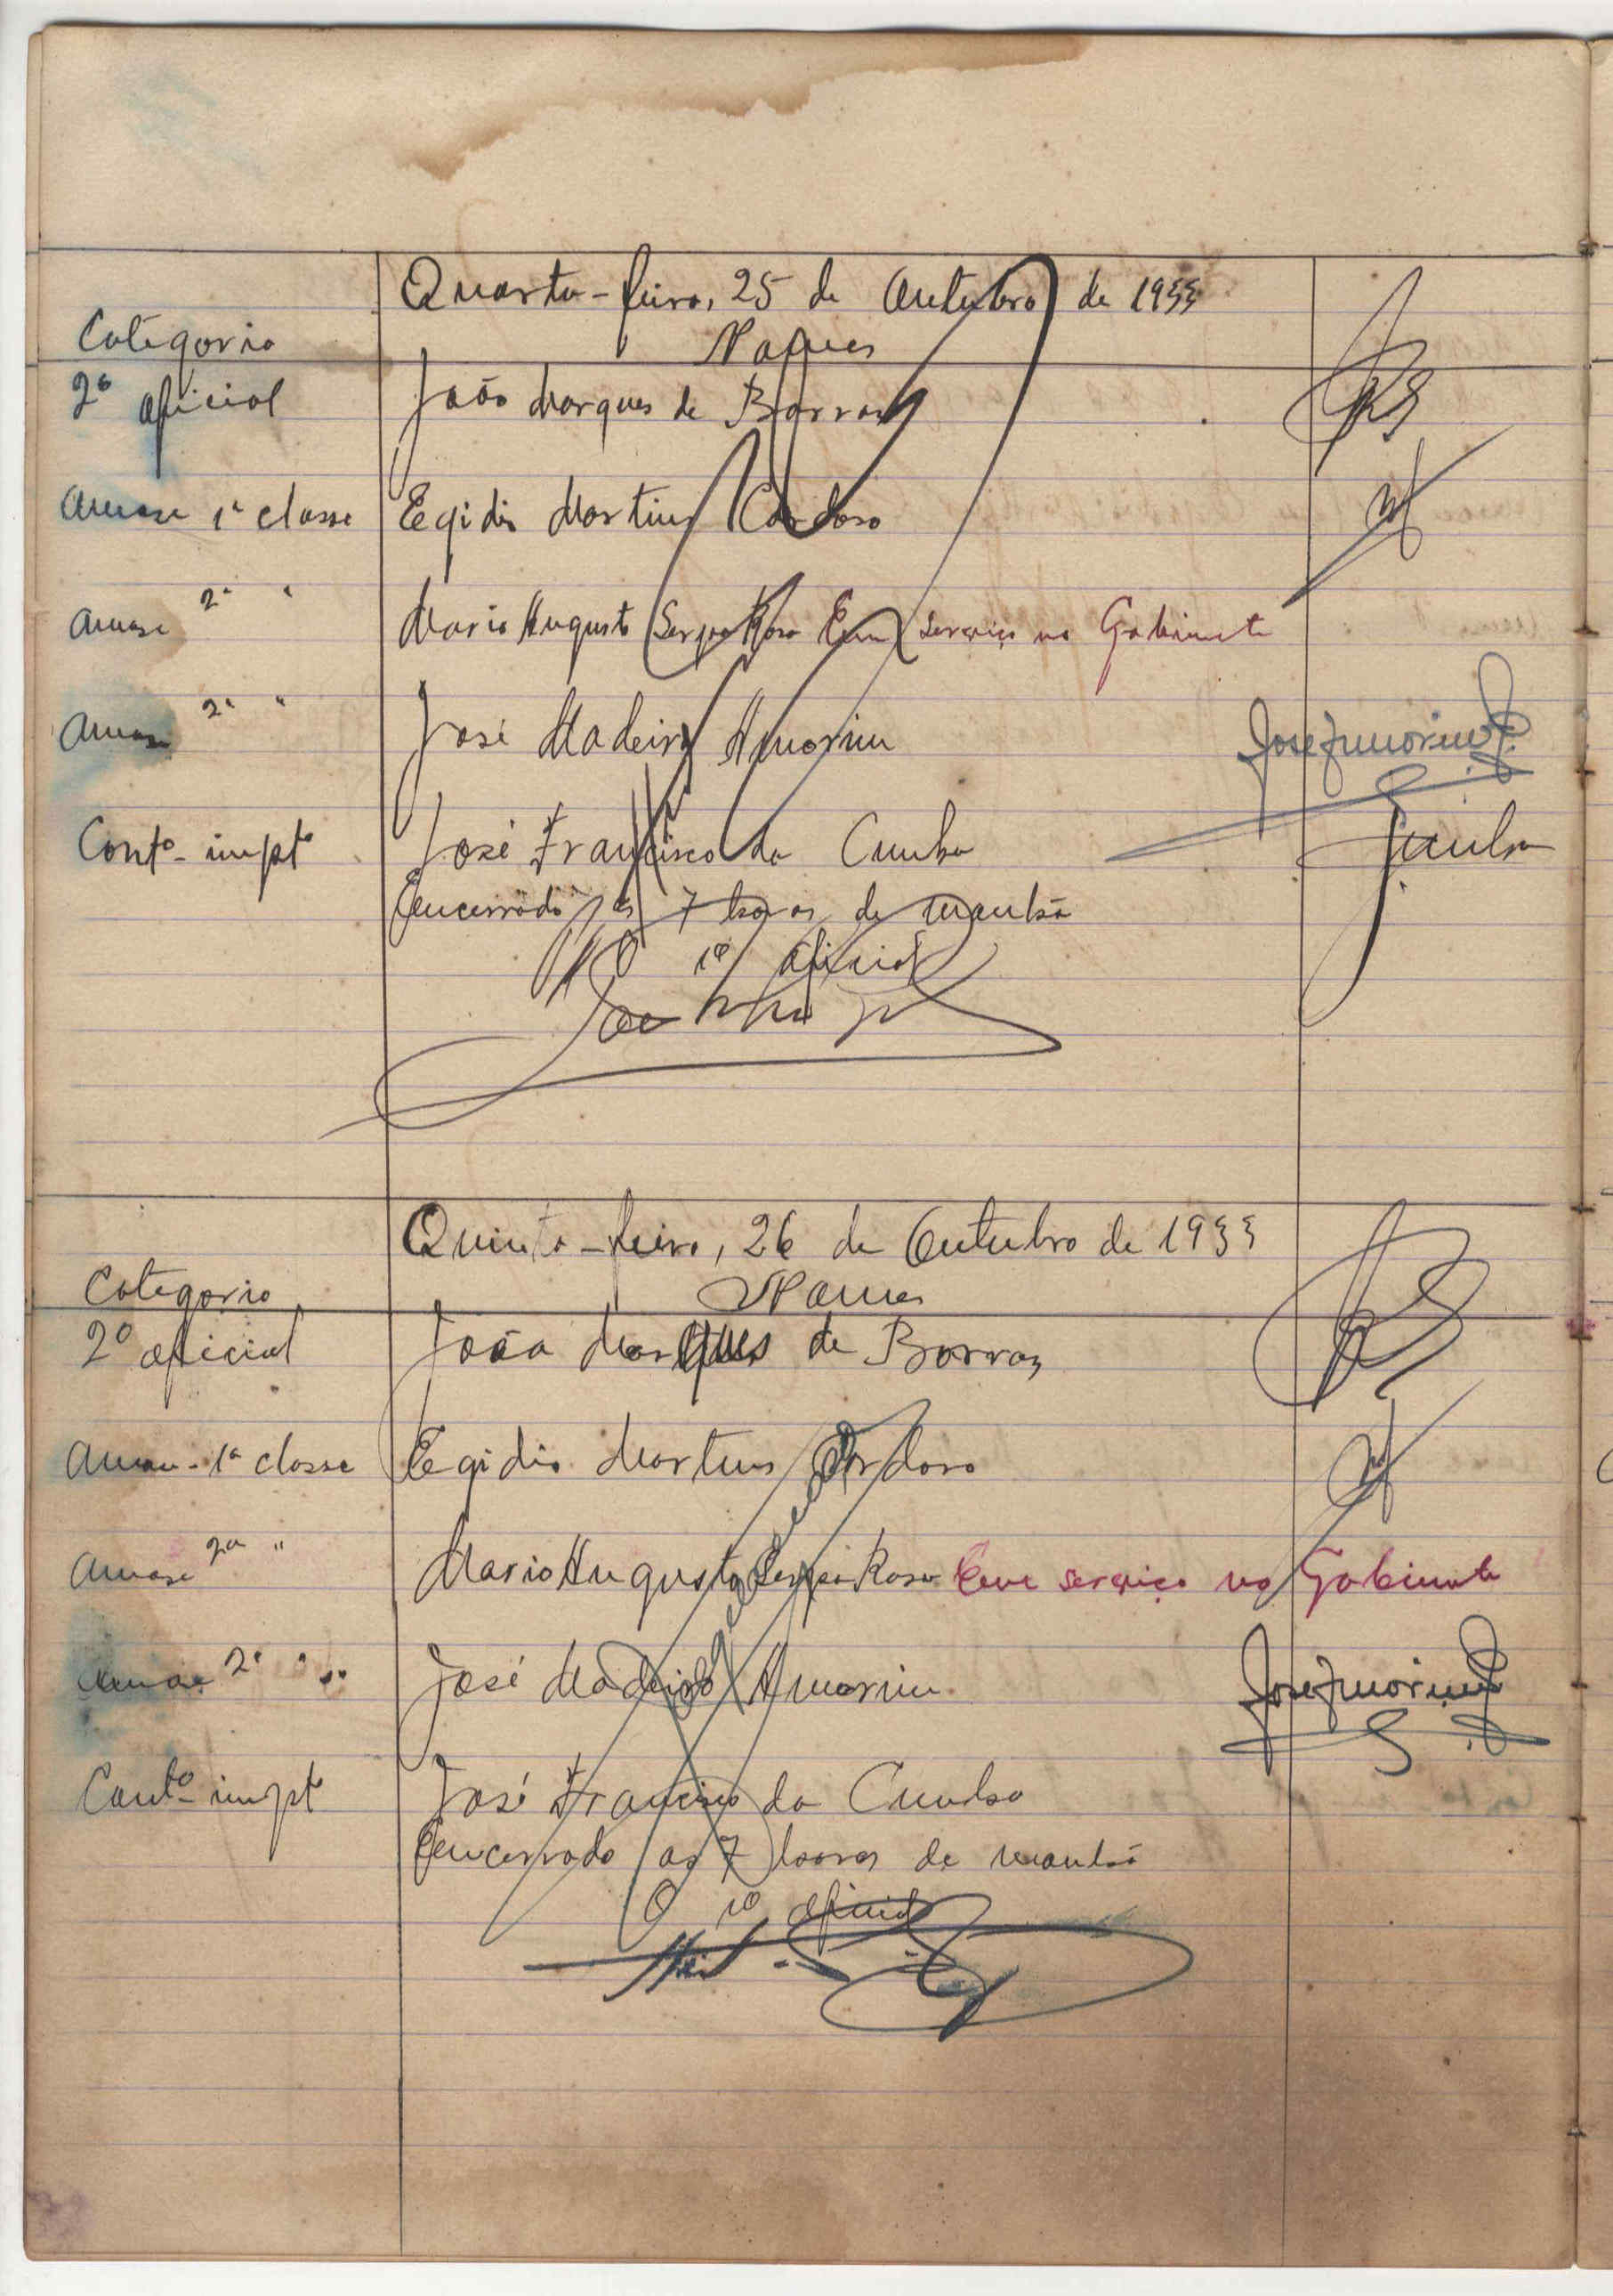 Quarta-feira, 25 de Outubro de 1933
Categoria Nomes
2º oficial João Marques de Barros
Amase 1ª classe Egidio Martins Cardoso
Amase 2ª " Mario Augusto Serpa Rosa Em serviço no Gabinete
Amase 2ª " José Madeira Amorim JoseAmorim
Contº impto José Francisco da Cunha Cunha
Encerrado ás 7 horas da manhã
O 1º oficial
Quinta-feira, 26 de Outubro de 1933
Categoria Nomes
2º oficial João Marques de Barros
Aman. 1ª classe Egidio Martins Cardoso
Amase 2ª " Mario Augusto Serpa Rosa Em serviço no Gabinete
Amase 2ª " José Madeira Amorim JoseAmorim
Contº impto José Francisco da Cunha
Encerrado as 7 horas da manhã
O 1º oficial